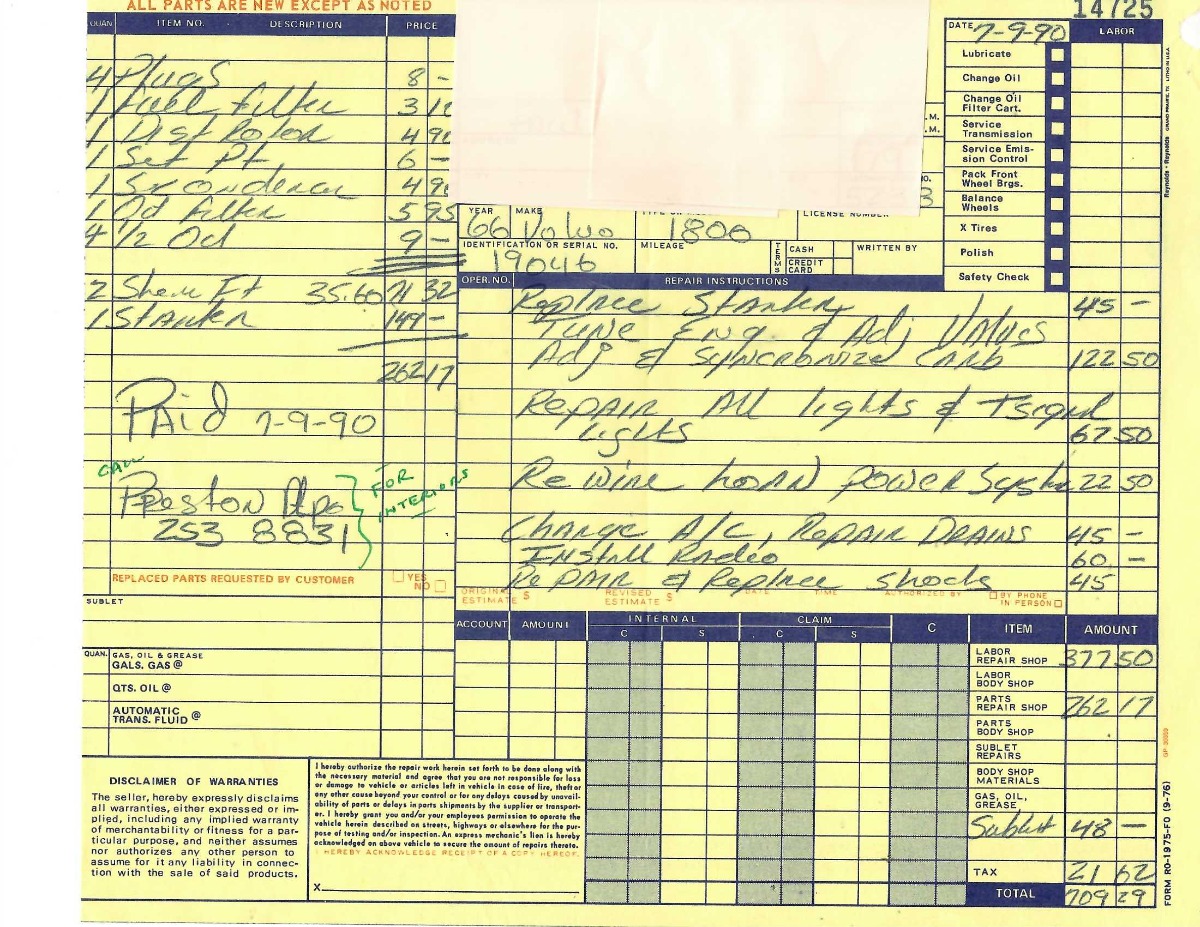 ALL PARTS ARE NEW EXCEPT AS NOTED
QUAN. ITEM NO. DESCRIPTION PRICE
4 Plugs 8 -
1 Fuel Filter 3 1
1 Dist Rotor 4 9
1 Set Pt. 6 -
1 4 9
1 Oil Filter 5 95
4 1/2 Oil 9 -
2 35.60 71 32
1 Starter 149 -
262 17
PAid 7-9-90
CALL
Preston
253 8831
FOR
INTERIORS
REPLACED PARTS REQUESTED BY CUSTOMER YES NO
SUBLET
QUAN. GAS, OIL & GREASE
GALS. GAS @
QTS. OIL @
AUTOMATIC
TRANS. FLUID @
DISCLAIMER OF WARRANTIES
The seller, hereby expressly disclaims
all warranties, either expressed or im-
plied, including any implied warranty
of merchantability or fitness for a par-
ticular purpose, and neither assumes
nor authorizes any other person to
assume for it any liability in connec-
tion with the sale of said products.
I hereby authorize the repair work herein set forth to be done along with
the necessary material and agree that you are not responsible for loss
or damage to vehicle or articles left in vehicle in case of fire, theft or
any other cause beyond your control or for any delays caused by unavail-
ability of parts or delays in parts shipments by the supplier or transport-
er. I hereby grant you and/or your employees permission to operate the
vehicle herein described on streets, highways or elsewhere for the pur-
pose of testing and/or inspection. An express mechanic's lien is hereby
acknowledged on above vehicle to secure the amount of repairs thereto.
I HEREBY ACKNOWLEDGE RECEIPT OF A COPY HEREOF.
X
14725
DATE 7-9-90 LABOR
Lubricate
Change Oil
Change Oil
Filter Cart.
Service
Transmission
Service Emis-
sion Control
Pack Front
Wheel Brgs.
Balance
Wheels
X Tires
Polish
Safety Check
.M.
.M.
NO.
3
YEAR MAKE LICENSE NUMBER
66 Volvo 1800
IDENTIFICATION OR SERIAL NO. MILEAGE TERMS CASH CREDIT CARD WRITTEN BY
19046
OPER. NO. REPAIR INSTRUCTIONS
Replace Starter 45 -
Tune Eng & Adj Valves
Adj & SYNCRONIZE CARB 122 50
REPAIR All lights &
lights 67 50
ReWire horn power 22 50
Change A/C, REPAIR DRAINS 45 -
INSTALL Radio 60 -
RePAIR & Replace shocks 45
ORIGINAL ESTIMATE $ REVISED ESTIMATE $ DATE TIME AUTHORIZED BY BY PHONE IN PERSON
ACCOUNT AMOUNT INTERNAL CLAIM C ITEM AMOUNT
C S C S
LABOR
REPAIR SHOP 377 50
LABOR
BODY SHOP
PARTS
REPAIR SHOP 262 17
PARTS
BODY SHOP
SUBLET
REPAIRS
BODY SHOP
MATERIALS
GAS, OIL,
GREASE
Sublet 48 -
TAX 21 62
TOTAL 709 29
Reynolds + Reynolds GRAND PRAIRIE, TX LITHO IN U.S.A.
FORM RO-1975-FO (9-76)